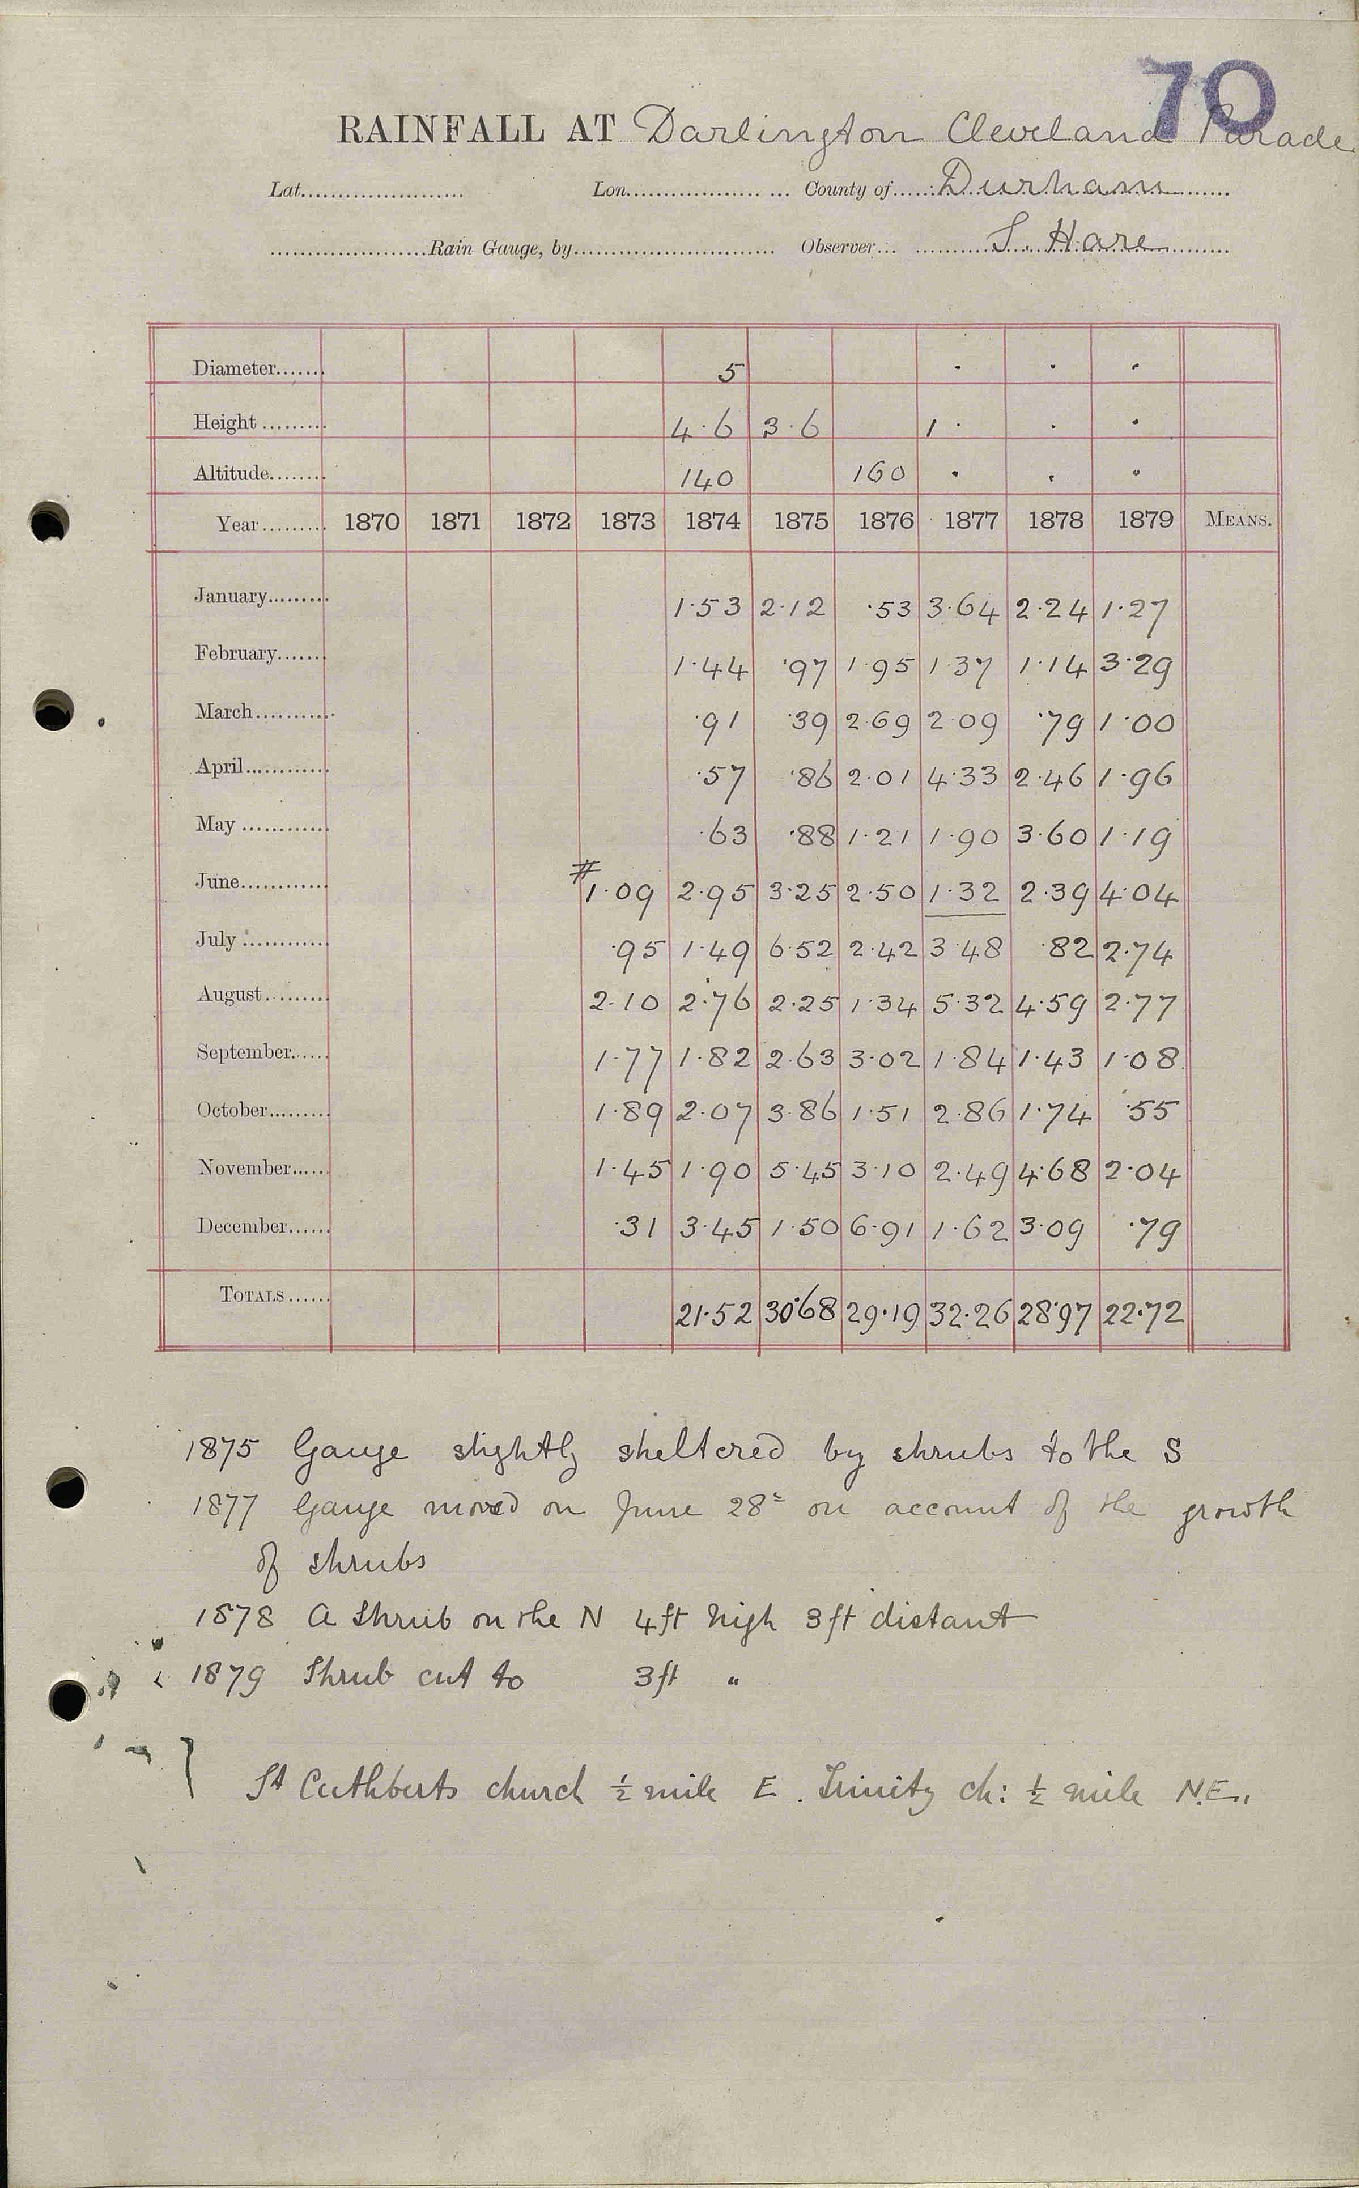 70
RAINFALL AT Darlington Cleveland Parade
Lat. Lon. County of Durham
Rain Gauge, by Observer S. Hare
Diameter 5 · · ·
Height 4·6 3·6 1· · ·
Altitude 140 160 · · ·
Year 1870 1871 1872 1873 1874 1875 1876 1877 1878 1879 MEANS.
January 1·53 2·12 ·53 3·64 2·24 1·27
February 1·44 ·97 1·95 1·37 1·14 3·29
March ·91 ·39 2·69 2·09 ·79 1·00
April ·57 ·86 2·01 4·33 2·46 1·96
May ·63 ·88 1·21 1·90 3·60 1·19
June #1·09 2·95 3·25 2·50 1·32 2·39 4·04
July ·95 1·49 6·52 2·42 3·48 ·82 2·74
August 2·10 2·76 2·25 1·34 5·32 4·59 2·77
September 1·77 1·82 2·63 3·02 1·84 1·43 1·08
October 1·89 2·07 3·86 1·51 2·86 1·74 ·55
November 1·45 1·90 5·45 3·10 2·49 4·68 2·04
December ·31 3·45 1·50 6·91 1·62 3·09 ·79
TOTALS 21·52 30·68 29·19 32·26 28·97 22·72
1875 Gauge slightly sheltered by shrubs to the S
1877 Gauge moved on June 28th on account of the growth
of shrubs
1878 A Shrub on the N 4ft high 3ft distant
1879 Shrub cut to 3ft "
St Cuthberts church ½ mile E. Trinity ch: ½ mile N.E.